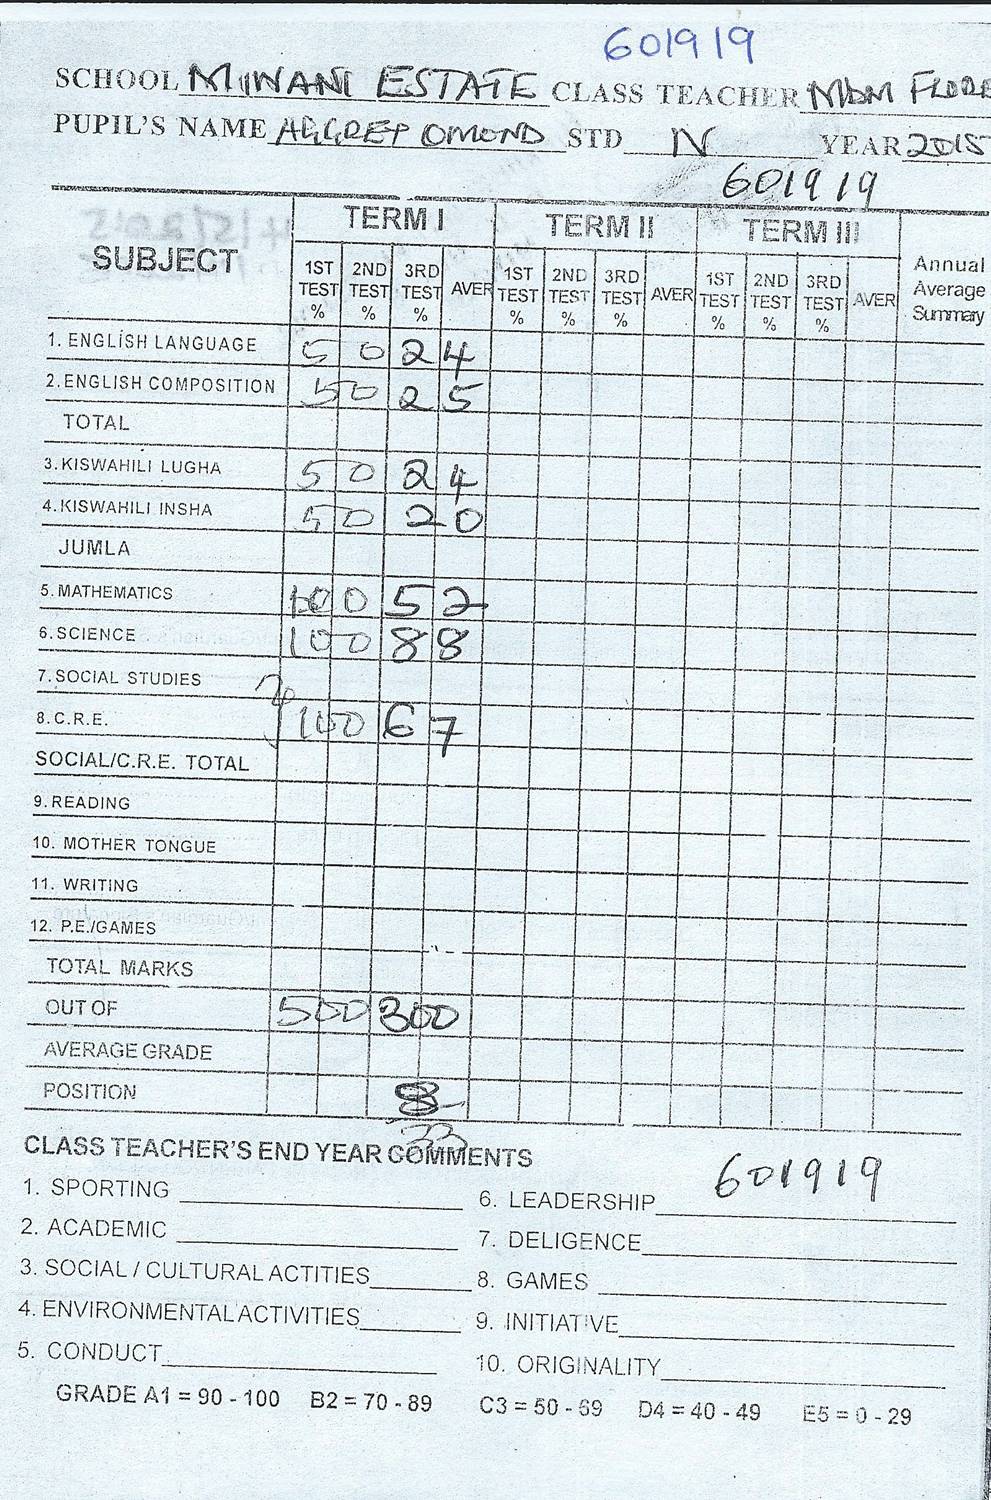 601919
SCHOOL MIWANI ESTATE CLASS TEACHER MDM FLORE
PUPIL'S NAME AGGREY OMOND STD IV YEAR 2015
601919
SUBJECT TERM I TERM II TERM III Annual Average Summary
1ST TEST % 2ND TEST % 3RD TEST % AVER 1ST TEST % 2ND TEST % 3RD TEST % AVER 1ST TEST % 2ND TEST % 3RD TEST % AVER
1. ENGLISH LANGUAGE 50 24
2. ENGLISH COMPOSITION 50 25
TOTAL
3. KISWAHILI LUGHA 50 24
4. KISWAHILI INSHA 50 20
JUMLA
5. MATHEMATICS 100 52
6. SCIENCE 100 88
7. SOCIAL STUDIES
8. C.R.E. 100 67
SOCIAL/C.R.E. TOTAL
9. READING
10. MOTHER TONGUE
11. WRITING
12. P.E./GAMES
TOTAL MARKS
OUT OF 500 300
AVERAGE GRADE
POSITION 8
33
CLASS TEACHER'S END YEAR COMMENTS
601919
1. SPORTING 6. LEADERSHIP
2. ACADEMIC 7. DELIGENCE
3. SOCIAL / CULTURAL ACTITIES 8. GAMES
4. ENVIRONMENTAL ACTIVITIES 9. INITIATIVE
5. CONDUCT 10. ORIGINALITY
GRADE A1 = 90 - 100 B2 = 70 - 89 C3 = 50 - 69 D4 = 40 - 49 E5 = 0 - 29